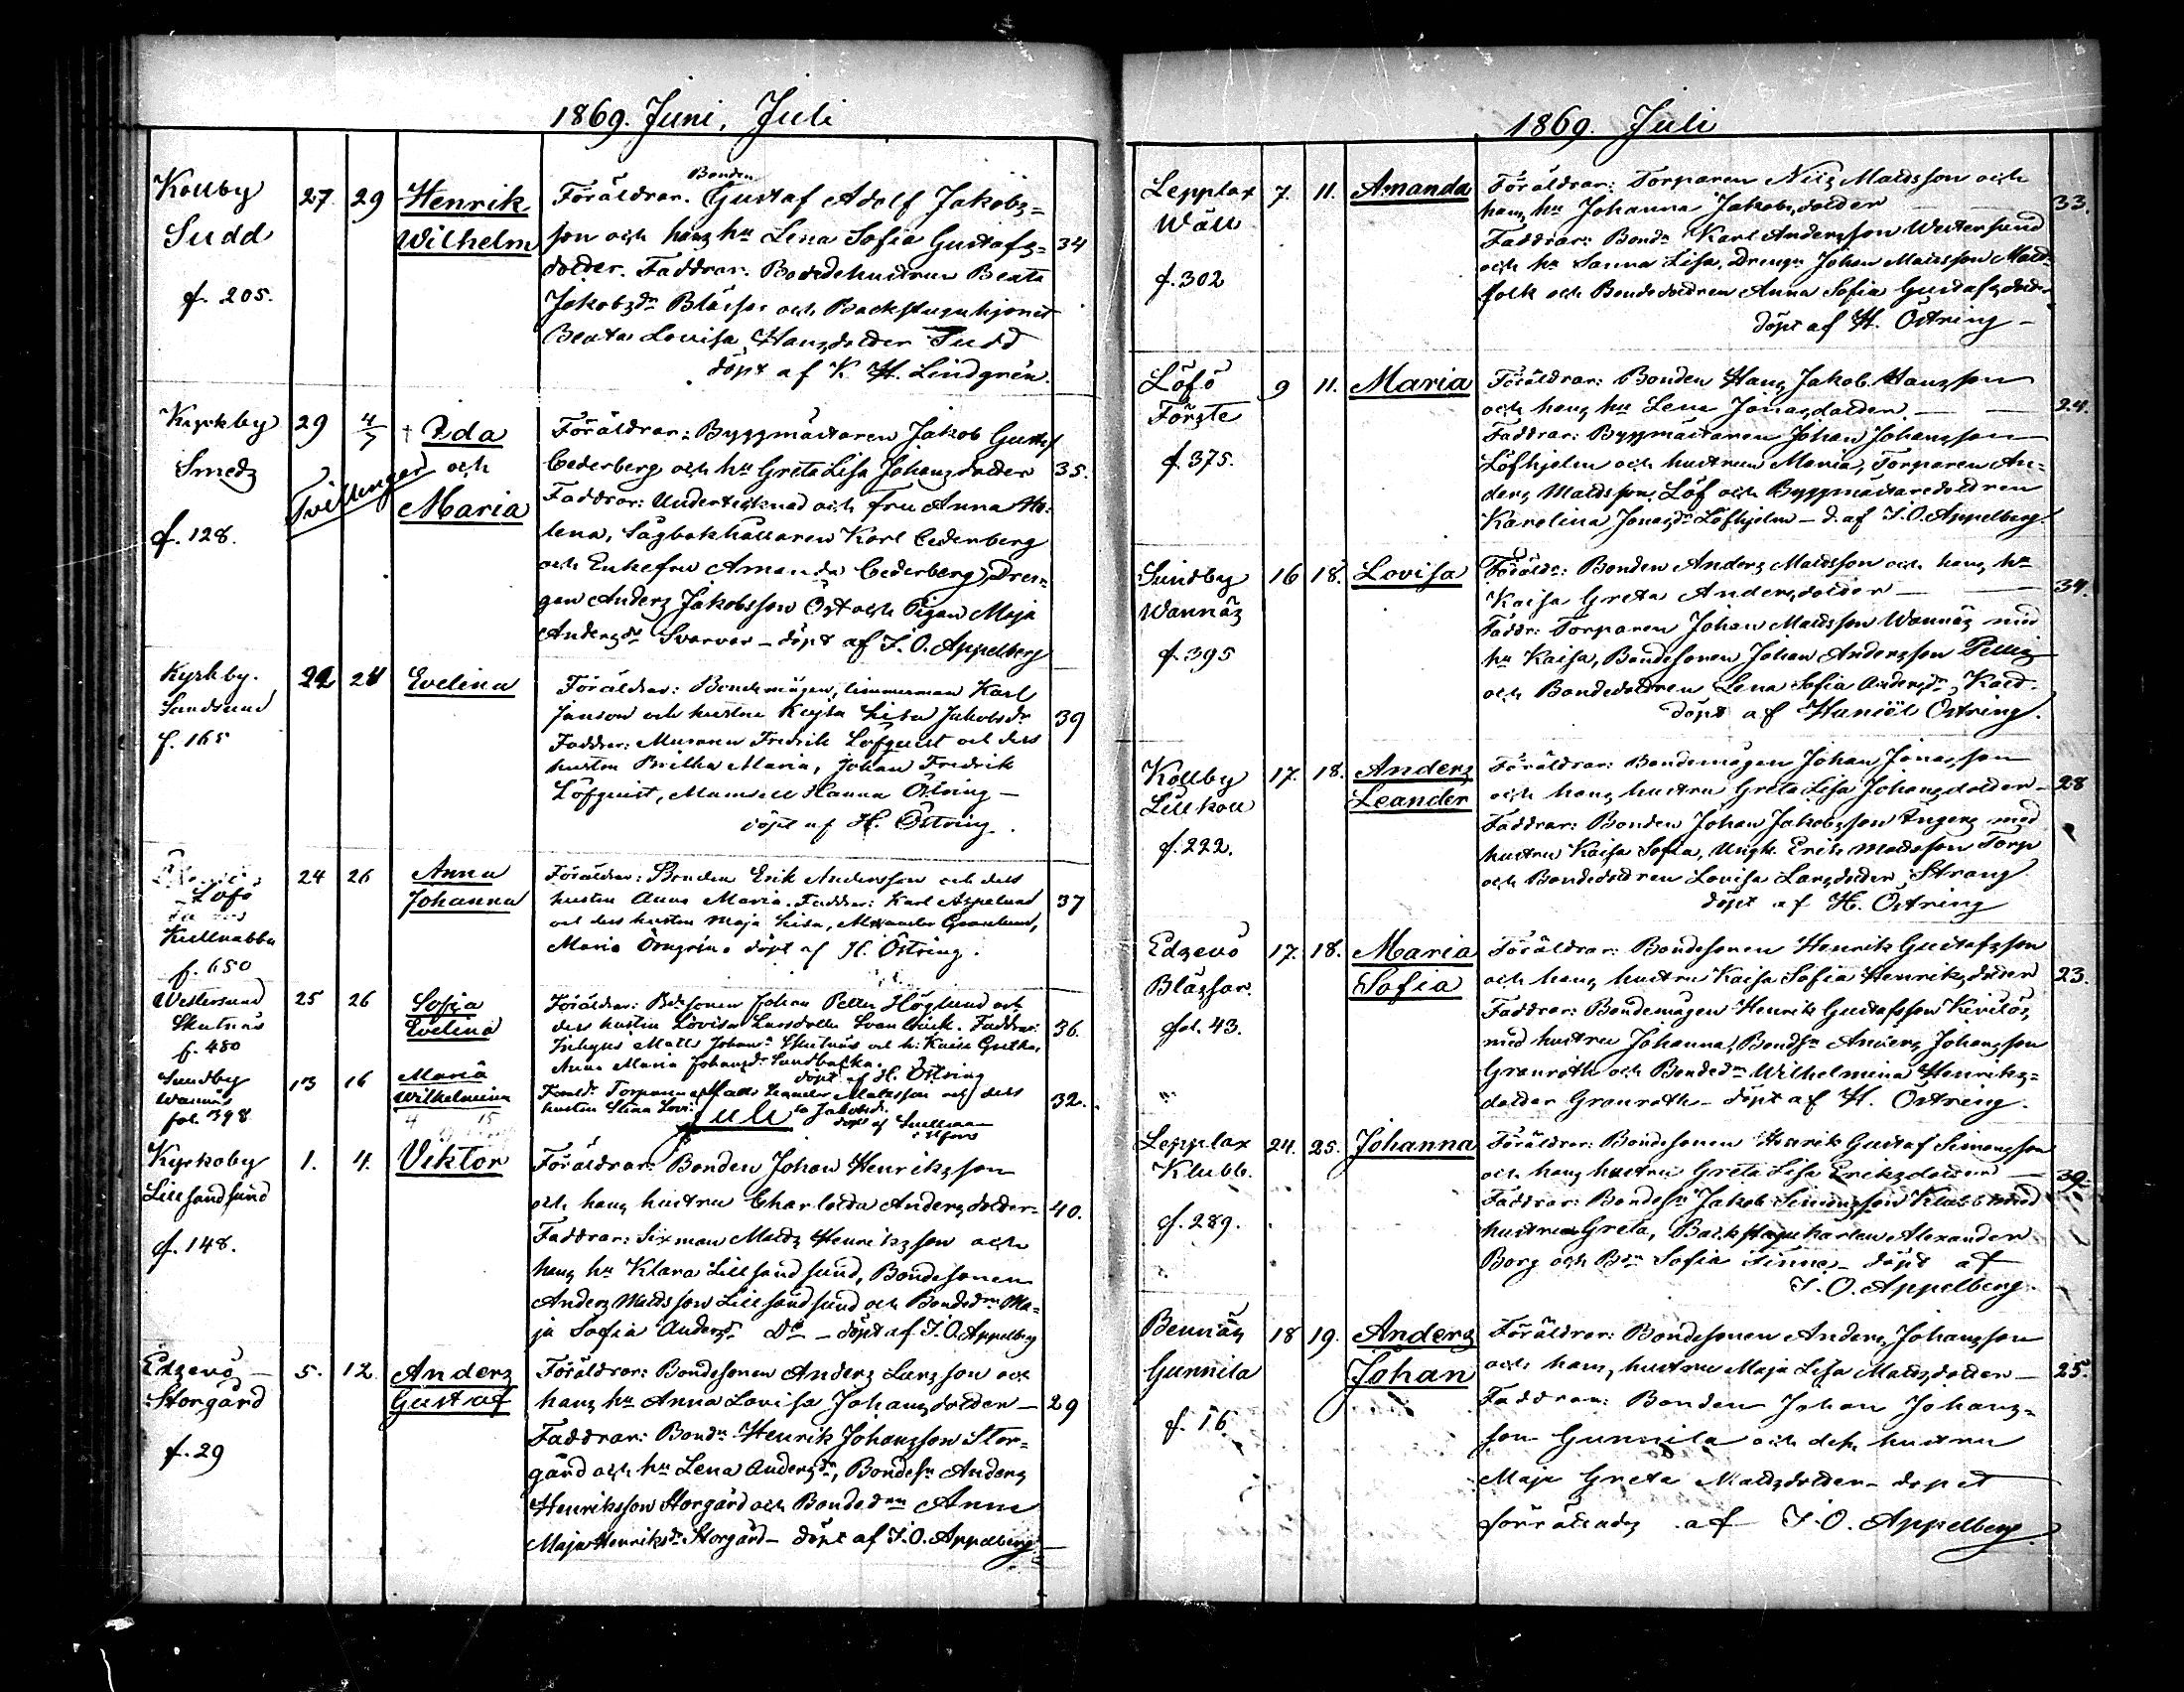 1869. Juni, Juli
Kållby 27. 29 Henrik Föräldrar. Bonden Gustaf Adolf Jakobs=
Sudd Wilhelm son och hans hu Lena Sofia Gustafs= 34
dotter. Faddrar. Bondehustrun Beata
f. 205. Jakobsdr Bläsar och Backstuguhjonet
Beata Lovisa Hansdotter Sudd
döpt af K. H. Lindgrén.
Kyrkby 29 4/7 † Ida Föräldrar: Byggmästaren Jakob Gustaf
Smeds Tvillingar och Cederberg och hu Greta Lisa Johansdotter 35.
Maria Faddrar: Undertecknad och fru Anna He-
f. 128. lena, Sågbokhållaren Karl Cederberg
och Enkefru Amanda Cederberg, Dren-
gen Anders Jakobsson Öst och Pigan Maja
Andersdr Svarvar – döpt af J. O. Appelberg
Kyrkby. 22 24 Evelina Föräldrar: Bondemågen, timmerman Karl
Sandsund Janson och hustru Kajsa Lisa Jakobsdr 39
f. 165 Faddrar: Muraren Fredrik Löfquist och dess
hustru Britha Maria, Johan Fredrik
Löfquist, Mamsell Hanna Östring –
döpt af H. Östring.
Löfö 24 26 Anna Föräldrar: Bonden Erik Andersson och dess
Johanna hustru Anna Maria. Faddrar: Karl Aspelund 37
Kullnabba och dess hustru Maja Lisa, Alexander Granlund,
f. 650 Maria Örngrén. döpt af H. Östring.
Westersund 25 26 Sofia Föräldrar: Bdesonen Johan Petter Höglund och
Skutnäs Evelina dess hustru Lovisa Larsdotter Svanbäck. Faddrar: 36.
f. 480 Inhyses Matts Johans Skutnäs och h: Kaisa Gretha,
Anna Maria Johansdr Sandbacka.
döpt af H. Östring
Sundby 13 16 Maria Föräldr. Torparen Matts Leander Mattsson och dess 32.
Wannäs Wilhelmina hustru Stina Lovisa Jakobsdr
fol. 398 döpt af Snellman
Juli
Kyrkoby 1. 4. Viktor Föräldrar: Bonden Johan Henriksson
Lillsandsund och hans hustru Charlotta Andersdotter- 40.
f. 148. Faddrar: Sexman Matts Henriksson och
hans hu Klara Lillsandsund, Bondesonen
Anders Mattsson Lillsandsund och Bondedrn Ma-
ja Sofia Andersdr Do – döpt af J. O. Appelberg
Edsevö – 5. 12. Anders Föräldrar: Bondesonen Anders Larsson och
Storgård Gustaf hans hu Anna Lovisa Johansdotter – 29
f. 29 Faddrar: Bondn Henrik Johansson Stor-
gård och hu Lena Andersdr, Bondesn Anders
Henriksson Storgård och Bondedrn Anna
Maja Henriksdr Storgård – döpt af J. O. Appelberg –
1869. Juli
Lepplax 7. 11. Amanda Föräldrar: Torparen Nils Mattsson och
Wäll hans hu Johanna Jakobsdotter 33.
Faddrar: Bondn Karl Andersson Westersund
f. 302 och hu Sanna Lisa, Drengn Johan Mattsson Matt-
folk och Bondedottren Anna Sofia Gustafsdotter
döpt af H. Östring –
Löfö 9 11. Maria Föräldrar: Bonden Hans Jakob Hansson
Förste och hans hu Lena Jonasdotter. – 24.
Faddrar: Byggmästaren Johan Johansson
f. 375. Löfhjelm och hustrun Maria, Torparen An-
ders Mattsson Löf och Byggmästaredottren
Karolina Jonasdr Löfhjelm – d. af J. O. Appelberg.
Sundby 16 18. Lovisa Föräldr: Bonden Anders Mattsson och hans hu
Wannäs Kaisa Greta Andersdotter – 34.
Faddr: Torparen Johan Mattsson Wannäs med
f. 395 hu Kaisa, Bondesonen Johan Andersson Pellis
och Bondedottren Lena Sofia Andersdr Kald.
döpt af Haniël Östring.
Kållby 17. 18. Anders Föräldrar: Bondemågen Johan Jonasson
Lillkåll Leander och hans hustru Greta Lisa Johansdotter – 28
Faddrar: Bonden Johan Jakobsson Ingers med
f. 222. hustru Kaisa Sofia, Ungk. Erik Mattsson Torp
och Bondedottren Lovisa Larsdotter Strang
döpt af H. Östring
Edsevö 17. 18. Maria Föräldrar: Bondesonen Henrik Gustafsson
Bläsar. Sofia och hans hustru Kaisa Sofia Henriksdotter 23.
Faddrar: Bondemågen Henrik Gustafsson Kivilös,
fol. 43. med hustru Johanna, Bondsn Anders Johansson
Granroth och Bondedrn Wilhelmina Henriks=
dotter Granroth – döpt af H. Östring.
Lepplax 24. 25. Johanna Föräldrar: Bondesonen Henrik Gustaf Simonsson
Klubb. och hans hustru Greta Lisa Eriksdotter – 39.
Faddrar: Bondesn Jakob Simonsson Klubb med
f. 289. hustrun Greta, Backstugukarlen Alexander
Borg och Bdn Sofia Finne – döpt af
J. O. Appelberg.
Bennäs 18 19. Anders Föräldrar: Bondesonen Anders Johansson
Gunnila Johan och hans hustru Maja Lisa Mattsdotter – 25.
Faddrar: Bonden Johan Johans-
f. 16 son Gunnila och dess hustru
Maja Greta Mattsdotter – dopet
förrättades af J. O. Appelberg.